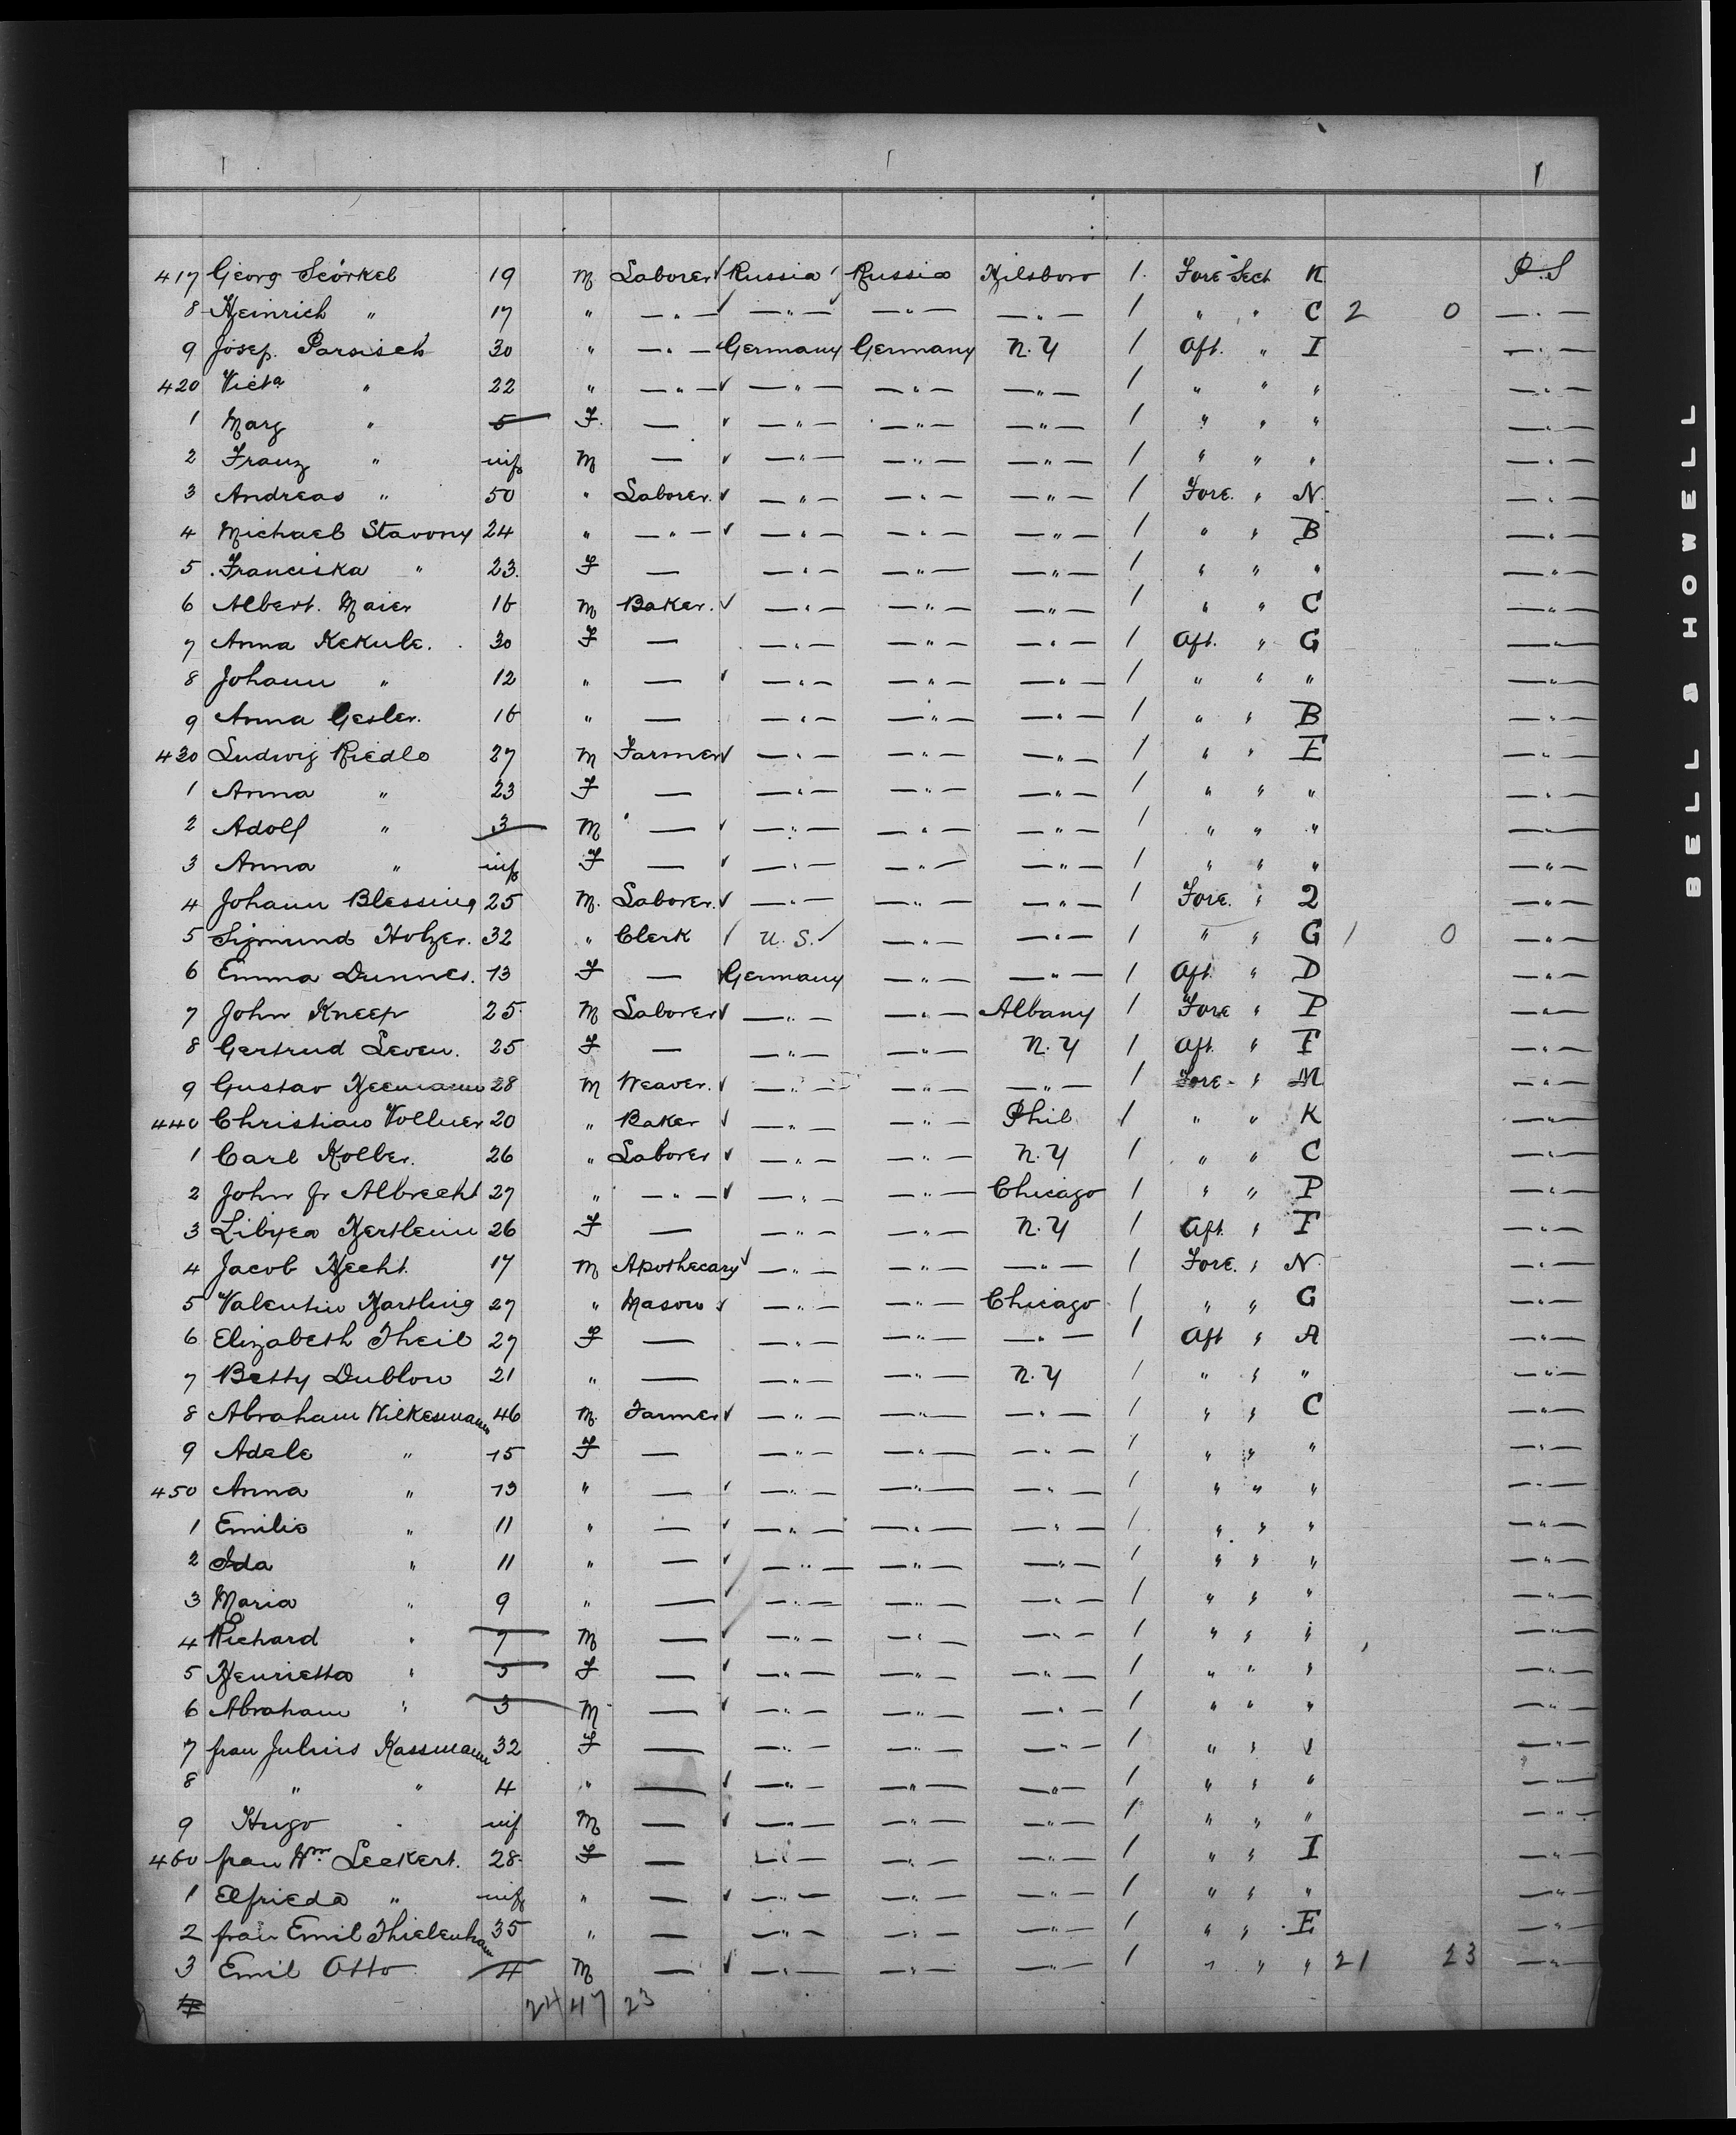 417 Georg Scörkel 19 M Laborer Russia Russia Hilsboro 1 Fore Sect K P.S
8 Heinrich " 17 " — " — — " — — " — — " — 1 " " C 2 0 — " —
9 Josep. Parsisch 30 " — " — Germany Germany N.Y 1 Aft. " I — " —
420 Victa " 22 " — " — — " — — " — — " — 1 " " " — " —
1 Marg " 5 F. — — " — — " — — " — 1 " " " — " —
2 Franz " inf M — — " — — " — — " — 1 " " " — " —
3 Andreas " 50 " Laborer. — " — — " — — " — 1 Fore. " N. — " —
4 Michael Stavony 24 " — " — — " — — " — — " — 1 " " B — " —
5 Franciska " 23. F — — " — — " — — " — 1 " " " — " —
6 Albert. Maier 16 M Baker. — " — — " — — " — 1 " " C — " —
7 Anna Kekule. 30 F — — " — — " — — " — 1 Aft. " G — " —
8 Johann " 12 " — — " — — " — — " — 1 " " " — " —
9 Anna Gesler. 16 " — — " — — " — — " — 1 " " B — " —
430 Ludwig Riedle 27 M Farmer — " — — " — — " — 1 " " E — " —
1 Anna " 23 F — — " — — " — — " — 1 " " " — " —
2 Adolf " 3 M — — " — — " — — " — 1 " " " — " —
3 Anna " inf F — — " — — " — — " — 1 " " " — " —
4 Johann Blessing 25 M. Laborer. — " — — " — — " — 1 Fore. " 2 — " —
5 Sigmund Holzer. 32 " Clerk U.S. — " — — " — 1 " " G 1 0 — " —
6 Emma Dunnes. 13 F — Germany — " — — " — 1 Aft " D — " —
7 John Kneep 25 M Laborer — " — — " — Albany 1 Fore " P — " —
8 Gertrud Leven. 25 F — — " — — " — N.Y 1 Aft. " F — " —
9 Gustav Heemann 28 M Weaver. — " — — " — — " — 1 Fore " M — " —
440 Christian Vollmer 20 " Baker — " — — " — Phil 1 " " K — " —
1 Carl Kolber. 26 " Laborer — " — — " — N.Y 1 " " C — " —
2 John Jr Albrecht 27 " — " — — " — — " — Chicago 1 " " P — " —
3 Hertlein 26 F — — " — — " — N.Y 1 Aft. " F — " —
4 Jacob Hecht. 17 M Apothecary — " — — " — — " — 1 Fore. " N. — " —
5 Valentin Hartling 27 " Mason — " — — " — Chicago 1 " " G — " —
6 Elizabeth Theil 27 F — — " — — " — — " — 1 Aft " A — " —
7 Betty Dublow 21 " — — " — — " — N.Y 1 " " " — " —
8 Abraham Wilkesmann 46 M. Farmer — " — — " — — " — 1 " " C — " —
9 Adele " 15 F — — " — — " — — " — 1 " " " — " —
450 Anna " 13 " — — " — — " — — " — 1 " " " — " —
1 Emilie " 11 " — — " — — " — — " — 1 " " " — " —
2 Ida " 11 " — — " — — " — — " — 1 " " " — " —
3 Maria " 9 " — — " — — " — — " — 1 " " " — " —
4 Richard " 7 M — — " — — " — — " — 1 " " " — " —
5 Henrietta " 5 F — — " — — " — — " — 1 " " " — " —
6 Abraham " 3 M — — " — — " — — " — 1 " " " — " —
7 frau Julius Kassmann 32 F — — " — — " — — " — 1 " " " — " —
8 " " 4 " — — " — — " — — " — 1 " " " — " —
9 Hugo " inf M — — " — — " — — " — 1 " " " — " —
460 frau Wm. Leckert. 28 F — — " — — " — — " — 1 " " I — " —
1 Elfrieda " inf " — — " — — " — — " — 1 " " " — " —
2 frau Emil Thielenhaus 35 " — — " — — " — — " — 1 " " E — " —
3 Emil Otto 4 M — — " — — " — — " — 1 " " " 21 23 — " —
24 47 23
BELL & HOWELL